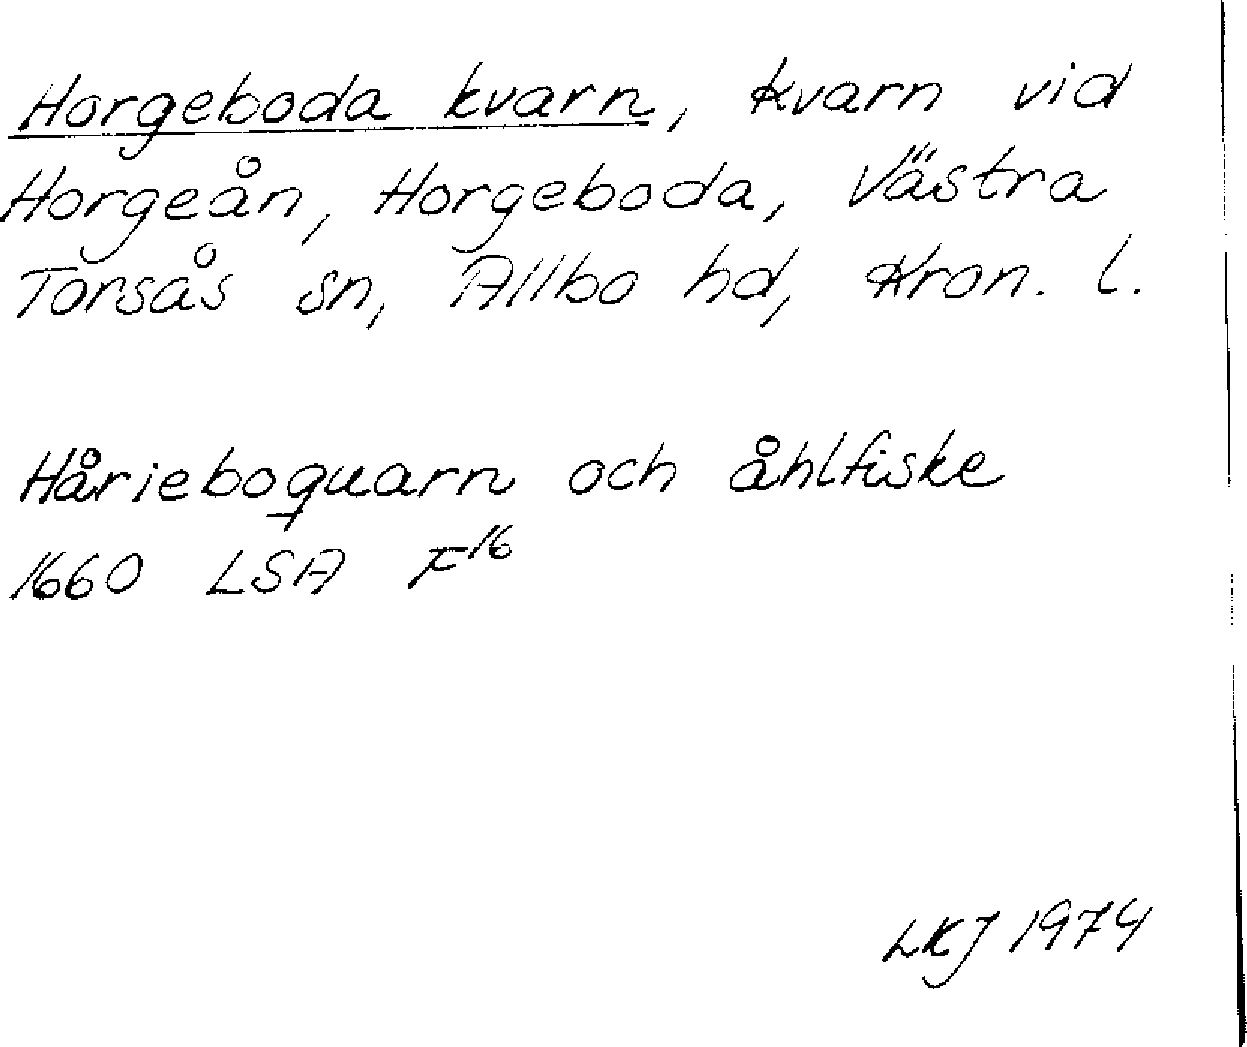 Horgeboda kvarn, kvarn vid
Horgeån, Horgeboda, Västra
Torsås sn, Allbo hd, Kron. l.
Hårieboquarn och åhlfiske
1660 LSA F16
LKJ 1974